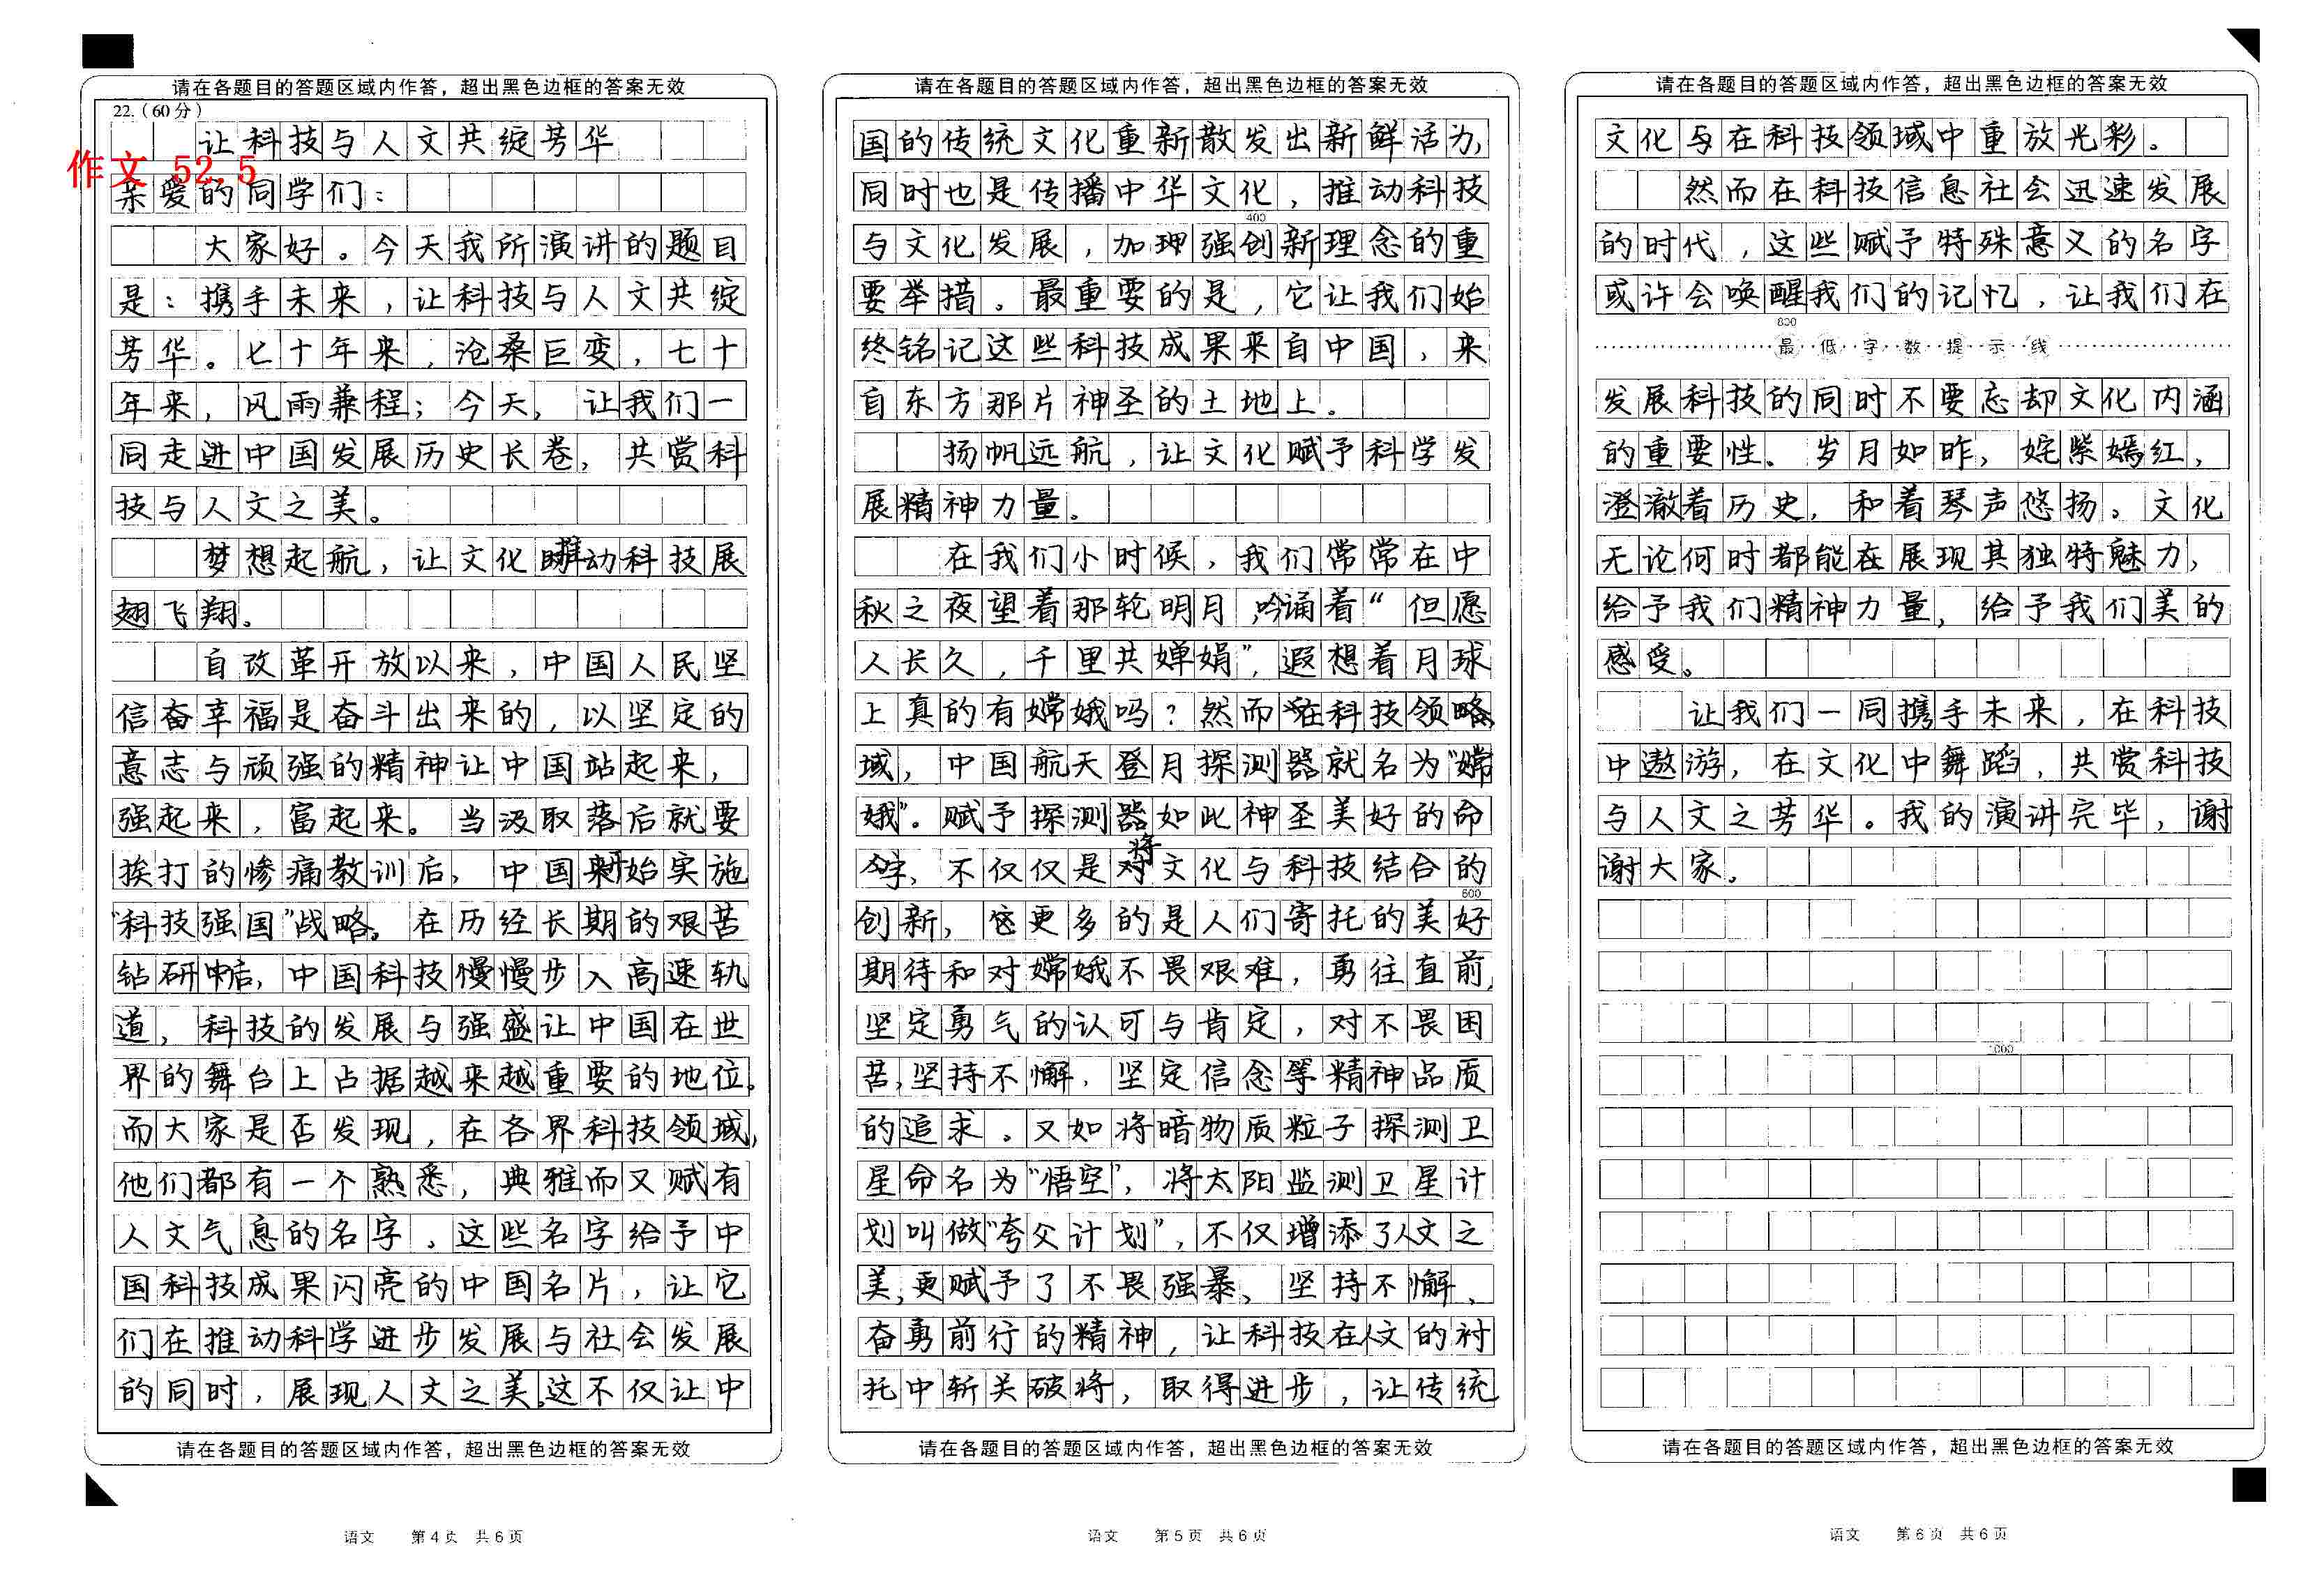 请在各题目的答题区域内作答，超出黑色边框的答案无效
22.（60分）
让科技与人文共绽芳华
作文 52.5
亲爱的同学们：
大家好。今天我所演讲的题目
是：携手未来，让科技与人文共绽
芳华。七十年来，沧桑巨变，七十
年来，风雨兼程；今天，让我们一
同走进中国发展历史长卷，共赏科
技与人文之美。
梦想起航，让文化推动科技展
翅飞翔。
自改革开放以来，中国人民坚
信奋幸福是奋斗出来的，以坚定的
意志与顽强的精神让中国站起来，
强起来，富起来。当汲取落后就要
挨打的惨痛教训后，中国开始实施
“科技强国”战略。在历经长期的艰苦
钻研后，中国科技慢慢步入高速轨
道，科技的发展与强盛让中国在世
界的舞台上占据越来越重要的地位。
而大家是否发现，在各界科技领域，
他们都有一个熟悉，典雅而又赋有
人文气息的名字。这些名字给予中
国科技成果闪亮的中国名片，让它
们在推动科学进步发展与社会发展
的同时，展现人文之美。这不仅让中
请在各题目的答题区域内作答，超出黑色边框的答案无效
语文 第4页 共6页
请在各题目的答题区域内作答，超出黑色边框的答案无效
国的传统文化重新散发出新鲜活力，
同时也是传播中华文化，推动科技
400
与文化发展，加强创新理念的重
要举措。最重要的是，它让我们始
终铭记这些科技成果来自中国，来
自东方那片神圣的土地上。
扬帆远航，让文化赋予科学发
展精神力量。
在我们小时候，我们常常在中
秋之夜望着那轮明月，吟诵着“但愿
人长久，千里共婵娟”，遐想着月球
上真的有嫦娥吗？然而在科技领
域，中国航天登月探测器就名为“嫦
娥”。赋予探测器如此神圣美好的命
字，不仅仅是将文化与科技结合的
600
创新，更多的是人们寄托的美好
期待和对嫦娥不畏艰难，勇往直前，
坚定勇气的认可与肯定，对不畏困
苦，坚持不懈，坚定信念等精神品质
的追求。又如将暗物质粒子探测卫
星命名为“悟空”，将太阳监测卫星计
划叫做“夸父计划”，不仅增添了人文之
美，更赋予了不畏强暴、坚持不懈、
奋勇前行的精神，让科技在人文的衬
托中斩关破将，取得进步，让传统
请在各题目的答题区域内作答，超出黑色边框的答案无效
语文 第5页 共6页
请在各题目的答题区域内作答，超出黑色边框的答案无效
文化与在科技领域中重放光彩。
然而在科技信息社会迅速发展
的时代，这些赋予特殊意义的名字
或许会唤醒我们的记忆，让我们在
800
最低字数提示线
发展科技的同时不要忘却文化内涵
的重要性。岁月如昨，姹紫嫣红，
澄澈着历史，和着琴声悠扬。文化
无论何时都能在展现其独特魅力，
给予我们精神力量，给予我们美的
感受。
让我们一同携手未来，在科技
中遨游，在文化中舞蹈，共赏科技
与人文之芳华。我的演讲完毕，谢
谢大家。
1000
请在各题目的答题区域内作答，超出黑色边框的答案无效
语文 第6页 共6页